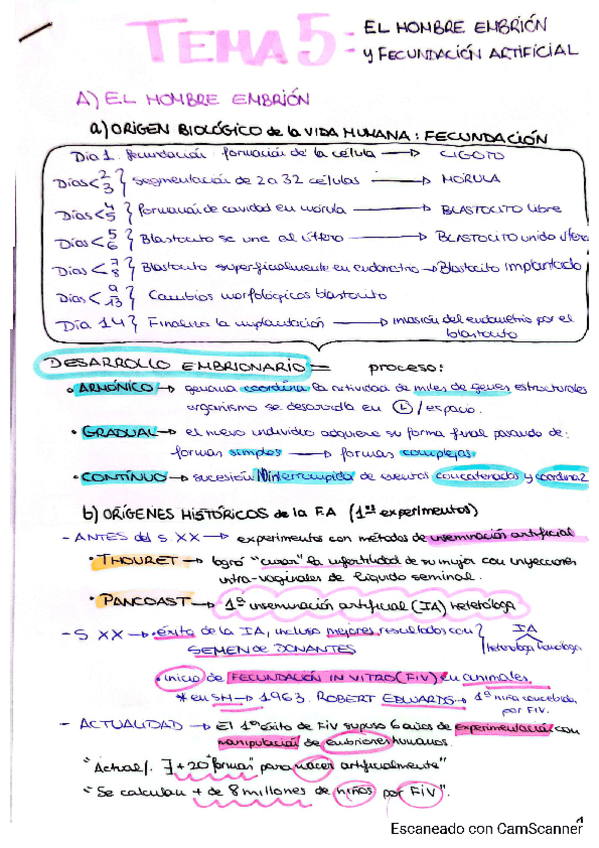 TEMA 5: EL HOMBRE EMBRIÓN
y FECUNDACIÓN ARTIFICIAL
A) EL HOMBRE EMBRIÓN
a) ORIGEN BIOLÓGICO de la VIDA HUMANA: FECUNDACIÓN
Día 1. fecundación. formación de la célula → CIGOTO
Días < 2 3 } segmentación de 2 a 32 células → MÓRULA
Días < 4 5 } formación de cavidad en mórula → BLASTOCITO libre
Días < 5 6 } Blastocito se une al útero → BLASTOCITO unido útero
Días < 7 8 } Blastocito superficialmente en endometrio → Blastocito implantado
Días < 9 13 } Cambios morfológicos blastocito
Día 14 } Finaliza la implantación → invasión del endometrio por el
blastocito
DESARROLLO EMBRIONARIO = proceso:
• ARMÓNICO → genoma coordina la actividad de miles de genes estructurales
organismo se desarrolla en /espacio.
• GRADUAL → el nuevo individuo adquiere su forma final pasando de:
formas simples → formas complejas
• CONTÍNUO → sucesión ininterrumpida de eventos concatenados y coordina2
b) ORÍGENES HISTÓRICOS de la F.A (1ºs experimentos)
- ANTES del S. XX → experimentos con métodos de inseminación artificial
• THOURET → logró "curar" la infertilidad de su mujer con inyecciones
intra-vaginales de líquido seminal.
• PANCOAST → 1ª inseminación artificial (IA) heteróloga
- S XX → • éxito de la IA, incluso mejores resultados con } IA
SEMEN DE DONANTES heteróloga homóloga
• inicio de FECUNDACIÓN IN VITRO (FIV) en animales.
* en SH → 1963. ROBERT EDWARDS → 1ª niña concebida
por FIV.
- ACTUALIDAD → El 1er éxito de FIV supuso 6 años de experimentación con
manipulación de embriones humanos.
"Actual/. ∃ +20 "formas" para nacer artificialmente"
"Se calculan + de 8 millones de niños por FIV".
1
Escaneado con CamScanner